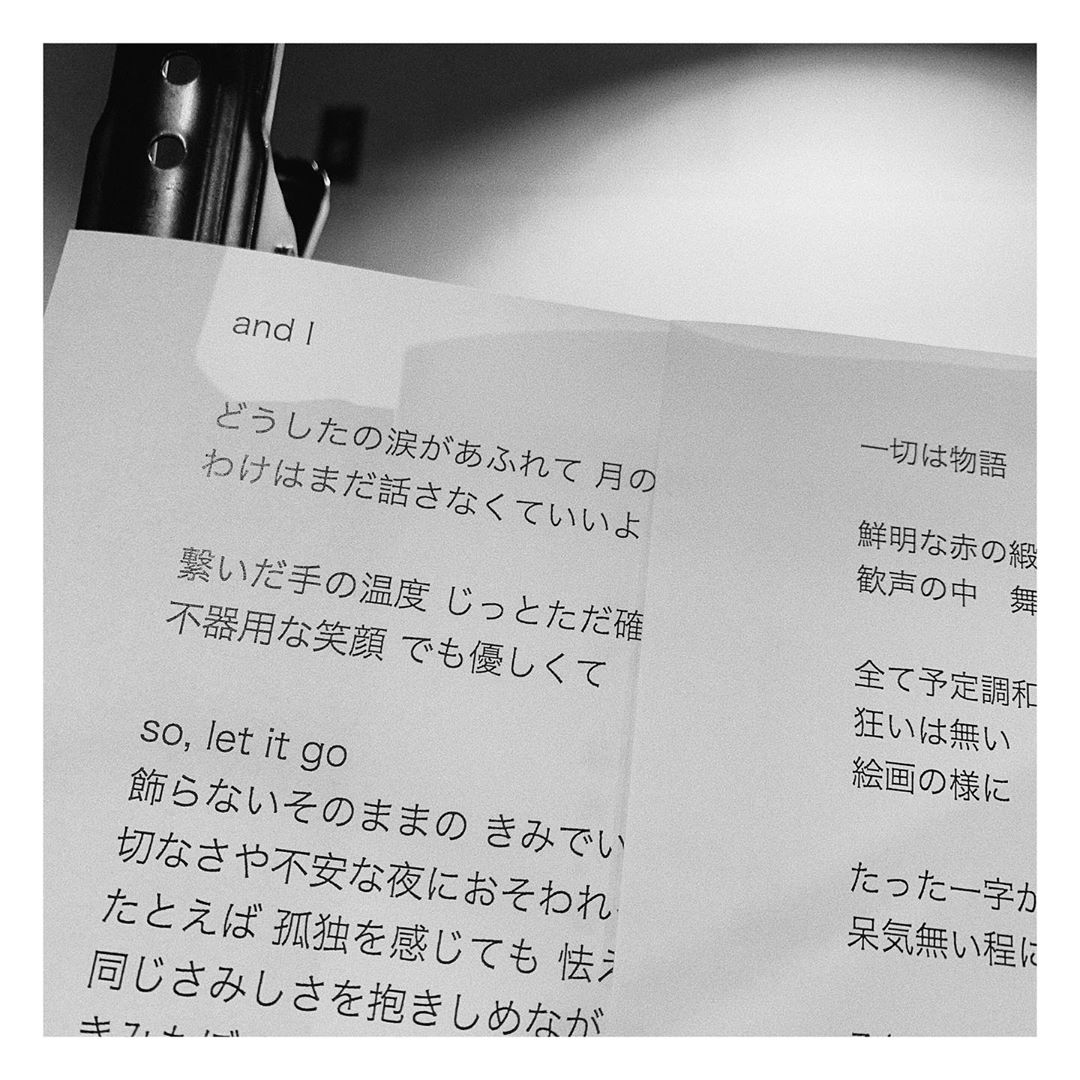 and I
どうしたの涙があふれて 月の
わけはまだ話さなくていいよ
繋いだ手の温度 じっとただ確
不器用な笑顔 でも優しくて
so, let it go
飾らないそのままの きみでい
切なさや不安な夜におそわれ
たとえば 孤独を感じても 怯え
同じさみしさを抱きしめなが
一切は物語
鮮明な赤の緞
歓声の中　舞
全て予定調和
狂いは無い
絵画の様に
たった一字が
呆気無い程に